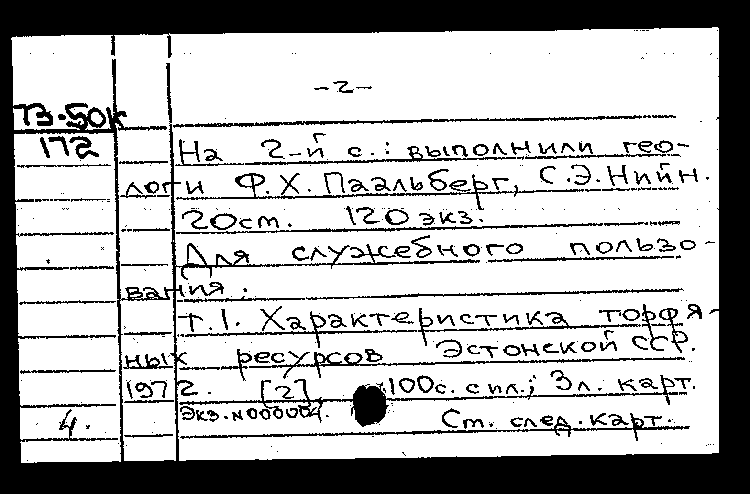 -2-
ТЗ-50к
172
На 2-й с.: выполнили гео-
логи Ф.Х. Паальберг, С.Э.Нийн.
20см. 120 экз.
Для служебного пользо-
вания.
Т.1. Характеристика торфя-
ных ресурсов Эстонской ССР.
1972. [2], 100с. с ил.; 3л. карт.
Экз. №000004.
4.
См. след. карт.